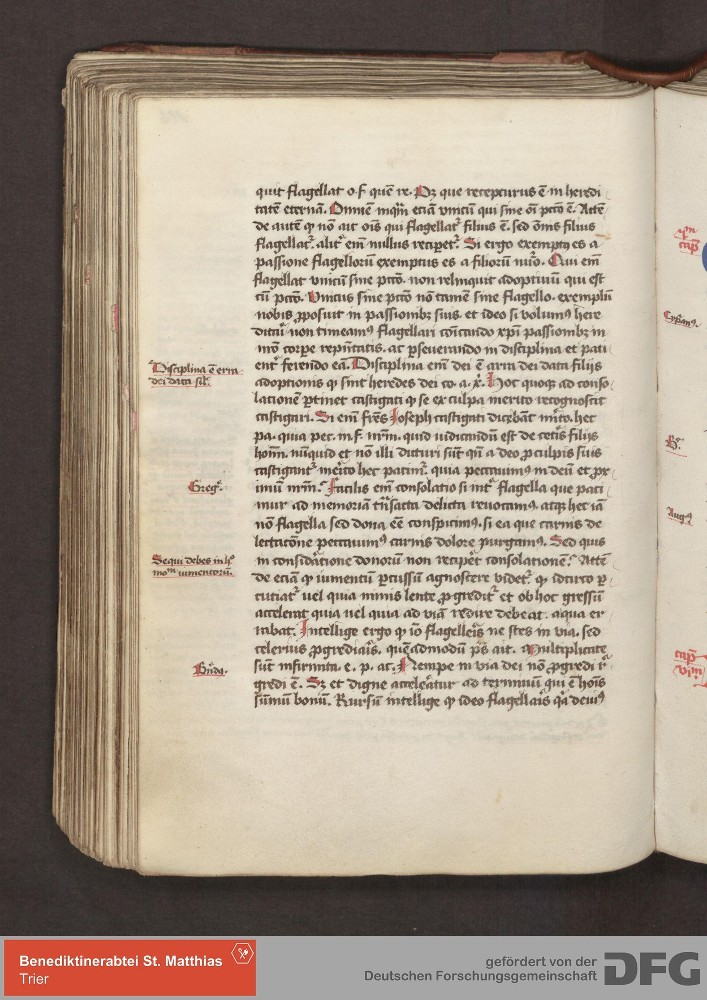 quit flagellat o. f. quē re. Qz que recepturus ē in heredi
tatē eternā. Omnēm inqͫ etiā vnicū qui sine oī pctō ē. Attē
de autē ꝙ nō ait oīs qui flagellatᷣ filius ē. sed oīms filius
flagellatᷣ. alitᷣ em̄ nullus recipetᷣ. Si ergo exemptꝰ es a
passione flagellorū exemptus es a filiorū nūo. Qui em̄
flagellat vnicū sine pctō. non relinquit adoptiuū qui est
cū pctō. Vnicus sine pctō nō tamē sine flagello. exemplū
nobis ꝓposuit in passionibꝫ suis. et ideo si volumꝰ here
ditari non timeamꝰ flagellari cōītando xp̄i passionibꝫ in
nrō corpe repūtatis. ac ꝑseuerando in disciplina et pati
entᷣ ferendo eā. Disciplina em̄ dei ē arra dei data filijs
adoptionis ꝙ sint heredes dei co. a. x̄. Hoc quoqꝫ ad conso
lationē ꝑtinet castigati ꝙ se ex culpa merito recognoscit
castigari. Si em̄ frēs Joseph castigati dicebant mᷣito. hec
pa. quia pec. in. f. nrm̄. quid iudicandū est de cetīs filijs
hoīm. nūquid et nō illi dicturi sūt qn̄ a deo ꝓ culpis suis
castigantᷣ merīto hec patimᷣ. quia peccauimꝰ in deū et prox
imū nrm̄. Facilis em̄ consolatio si intᷣ flagella que pati
mur ad memoriā trāsacta delicta reuocamꝰ. atqꝫ hec iā
nō flagella sed dona eē conspicimꝰ. si ea que carnis de
lectatōne peccauimꝰ carnis dolore purgamꝰ. Sed quis
in consid̄atione donorū non recipet consolationē. Attē
de etiā ꝙ iumentū ꝑcussū agnoscere videtᷣ ꝙ idcirco ꝑ
cutiatᷣ vel quia nimis lente ꝓgreditᷣ et ob hoc gressū
accelerat quia vel quia ad viā redire debeat. a qua er
rabat. Intellige ergo ꝙ iō flagellaīs ne stes in via. sed
celerius ꝓgrediaīs. queadmodū ps̄ ait. Multiplicate
sūt infirmita. e. p. ac. Nempe in via dei nō ꝓgredi rͤ
gredi ē. Sz et digne acceleratur ad terminū qui ē hoīs
sūmū bonū. Rursū intellige ꝙ ideo flagellaīs qͣ a deuiꝰ
Disciplina ē erra
dei data fil̄.
Gregᷣ.
Sequi debes in hͦ
moᵐ iumentorū.
Bn̄dꝰ.
qᵐ
cap̄
Cyp̄anꝰ.
Bͬ.
Augꝰ
cap̄
viiᵐ
Benediktinerabtei St. Matthias
Trier
gefördert von der
Deutschen Forschungsgemeinschaft
DFG